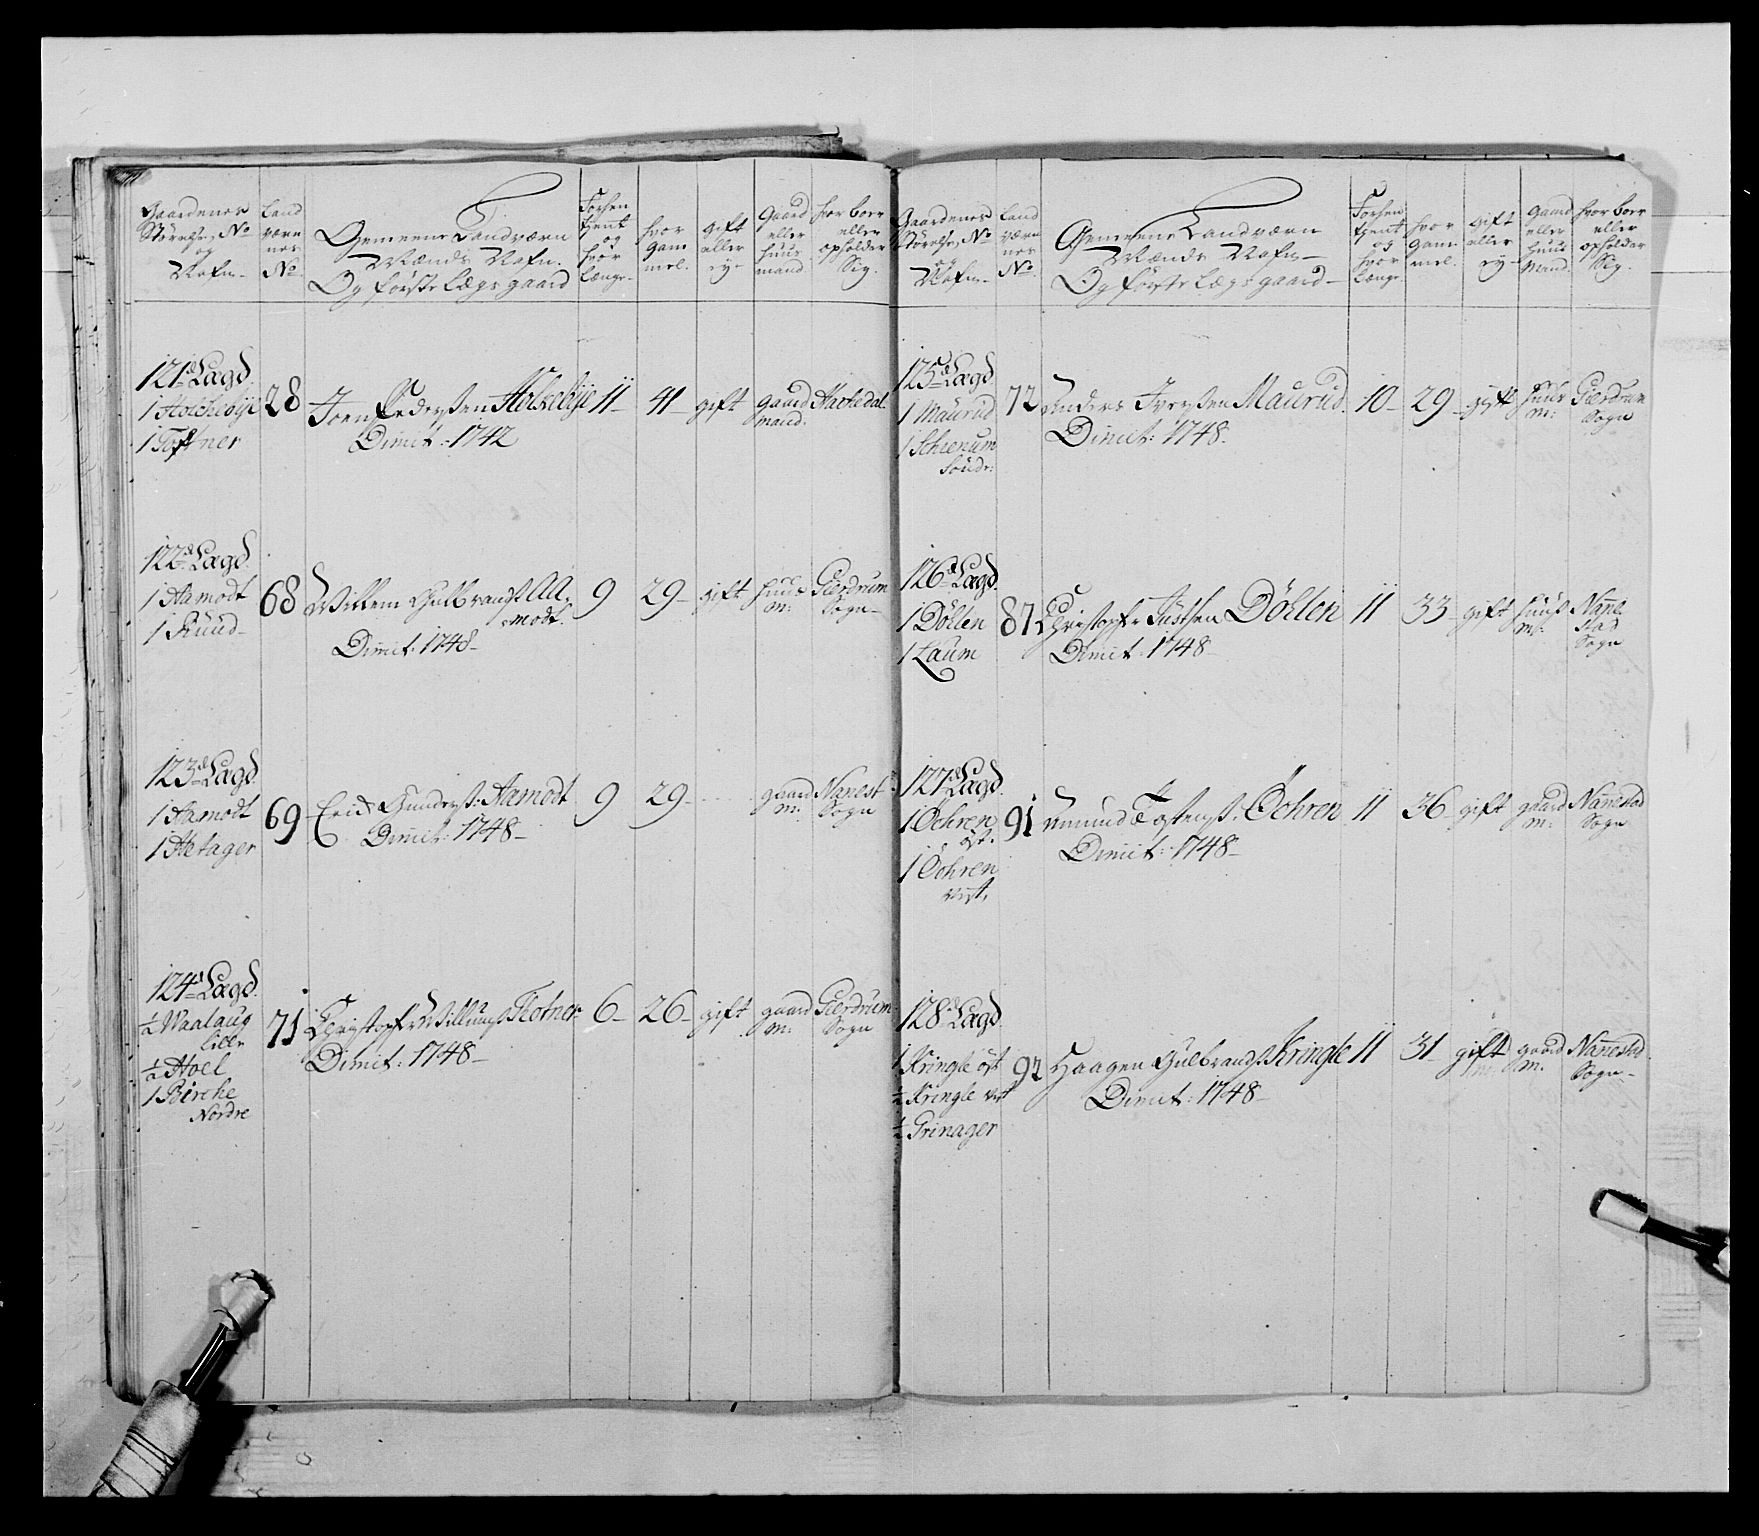 Gaardenes
Størrelse, No
og
Nafn
Land
værn
nes
No
Gemeene Landværn
Mænds Nafn
Og første Lægs gaard
Forhen
tjent
og
hvor
længe
hvor
Gam
mel.
gift
eller
ey
Gaard
eller
huus
mand
hvor boer
eller
opholder
Sig.
121de Lægd.
1 Holchebÿe
1 Toftner
28
Joen Pedersen Holsebÿe
Dimit: 1742
11
41
gift
gaard
mand.
Hachedal
122de Lægd.
1 Aamodt
1 Ruud
68
Willem Gulbrands: Aa,
modt.
Dimit: 1748
9
29
gift
huus
m:
Gierdrum
Sogn
123de Lægd.
1 Aamodt
1 Hetager
69
Erich Gunders: Aamodt
Dimit: 1748
9
29
gaard
m:
Nanest
Sogn
124de Lægd.
½ Waalaug
lille
½ Hoel
1 Birche
Nordre
71
Christopher Willums: Fiotner
Dimit: 1748
6
26
gift
gaard
m:
Gierdrum
Sogn
Gaardenes
Størrelse, No
og
Nafn
Land
værn
nes
No
Gemeene Landværn
Mænds Nafn
Og første Lægs gaard
Forhen
tjent
og
hvor
længe
hvor
Gam
mel.
gift
eller
ey
Gaard
eller
huus
Mand.
hvor boer
eller
opholder
Sig.
125de Lægd
1 Maurud
1 Schrenum
Søndr:
72
Anders Iversen Maurud
Dimit: 1748.
10
29
gift
huus
m:
Gierdrum
Sogn
126de Lægd.
1 Döhlen
1 Laum
87
Christopher Justsen Döhlen
Dimit: 1748
11
33
gift
huus
m:
Nane
stad
Sogn
127de Lægd.
1 Öchren
öst.
1 Öchren
vest,
91
Amund Tostens: Öchren
Dimit: 1748
11
36
gift
gaard
m:
Nanestad
Sogn
128de Lægd
1 Kringle öst
½ Kringle vest
½ Grinager
92
Haagen Gulbrands: Kringle
Dimit: 1748
11
31
gift
gaard
m.
Nanestad
Sogn